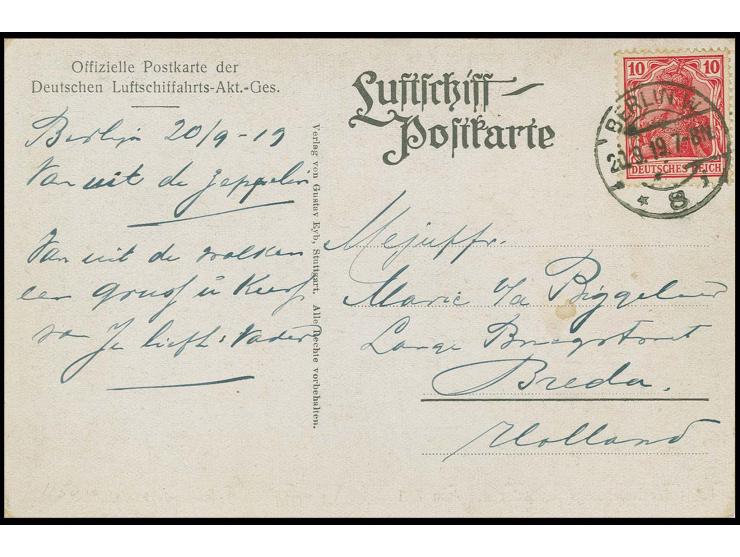 Offizielle Postkarte der
Deutschen Luftschiffahrts-Akt.-Ges.
Berlijn 20/9-19
Van uit de Zeppelin
Van uit de wolken
een groet & kus
van Je liefh: Vader
Verlag von Gustav Eyb, Stuttgart. Alle Rechte vorbehalten.
Luftschiff-
Postkarte
10 10
DEUTSCHES REICH
BERLIN W
20.9.19.7-8N.
* 8
Mejuffr.
Marie v/d
Lange
Breda.
Holland